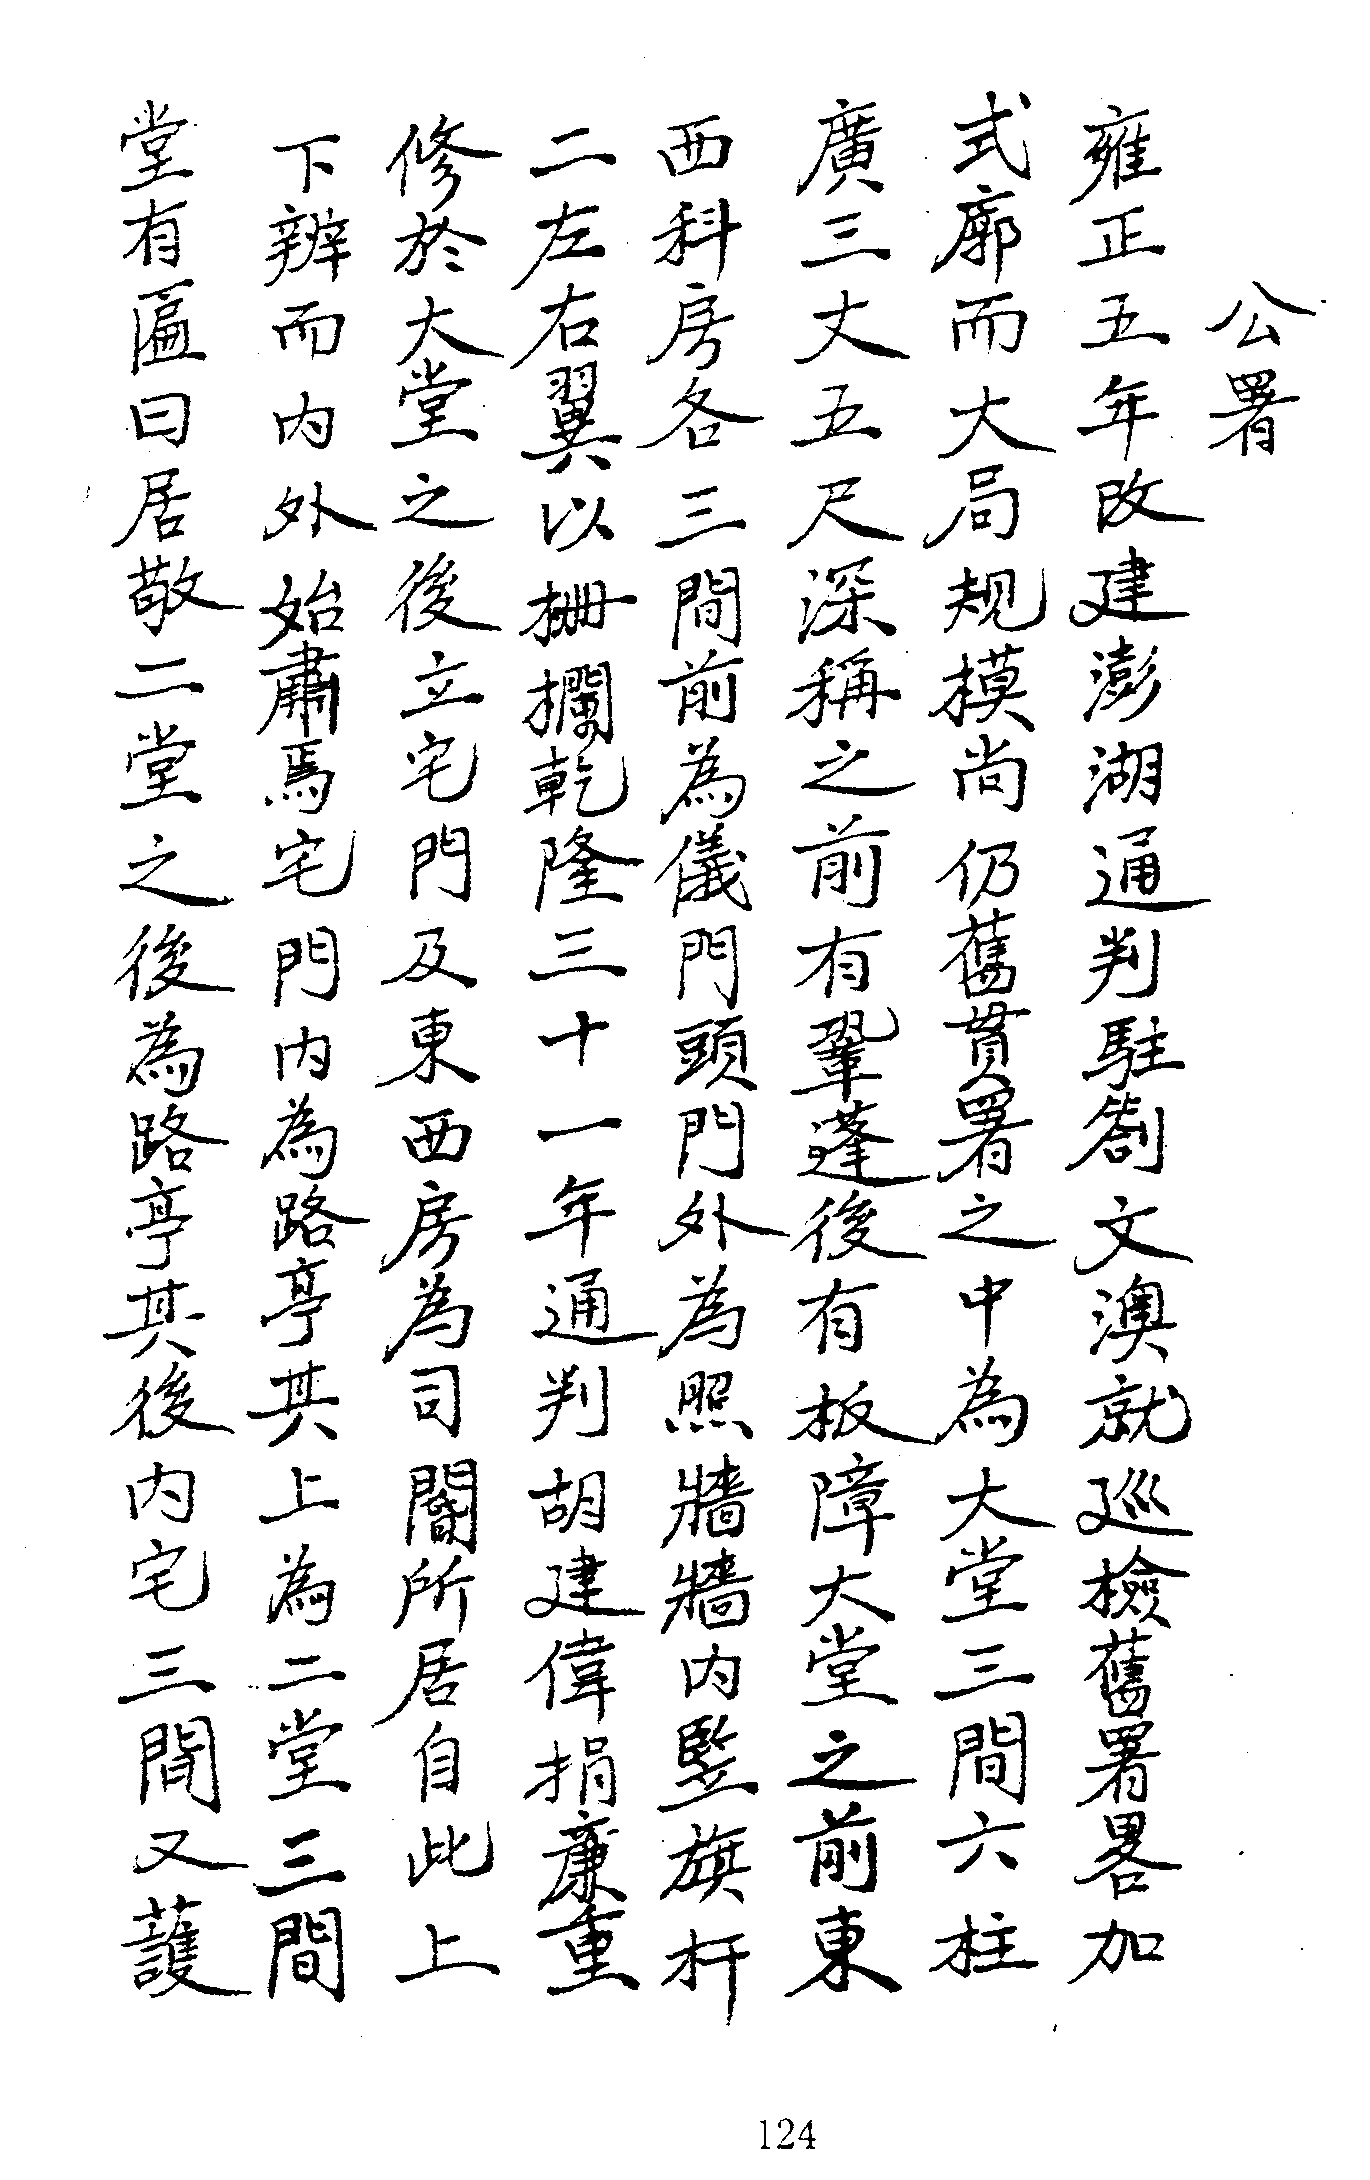 公署
雍正五年改建澎湖通判駐劄文澳就巡檢舊署畧加
式廓而大局規模尚仍舊貫署之中為大堂三間六柱
廣三丈五尺深稱之前有鞏蓬後有板障大堂之前東
西科房各三間前為儀門頭門外為照牆牆內竪旗杆
二左右翼以柵欄乾隆三十一年通判胡建偉捐廉重
修於大堂之後立宅門及東西房為司閽所居自此上
下辨而內外始肅焉宅門內為路亭其上為二堂三間
堂有匾曰居敬二堂之後為路亭其後內宅三間又護
124